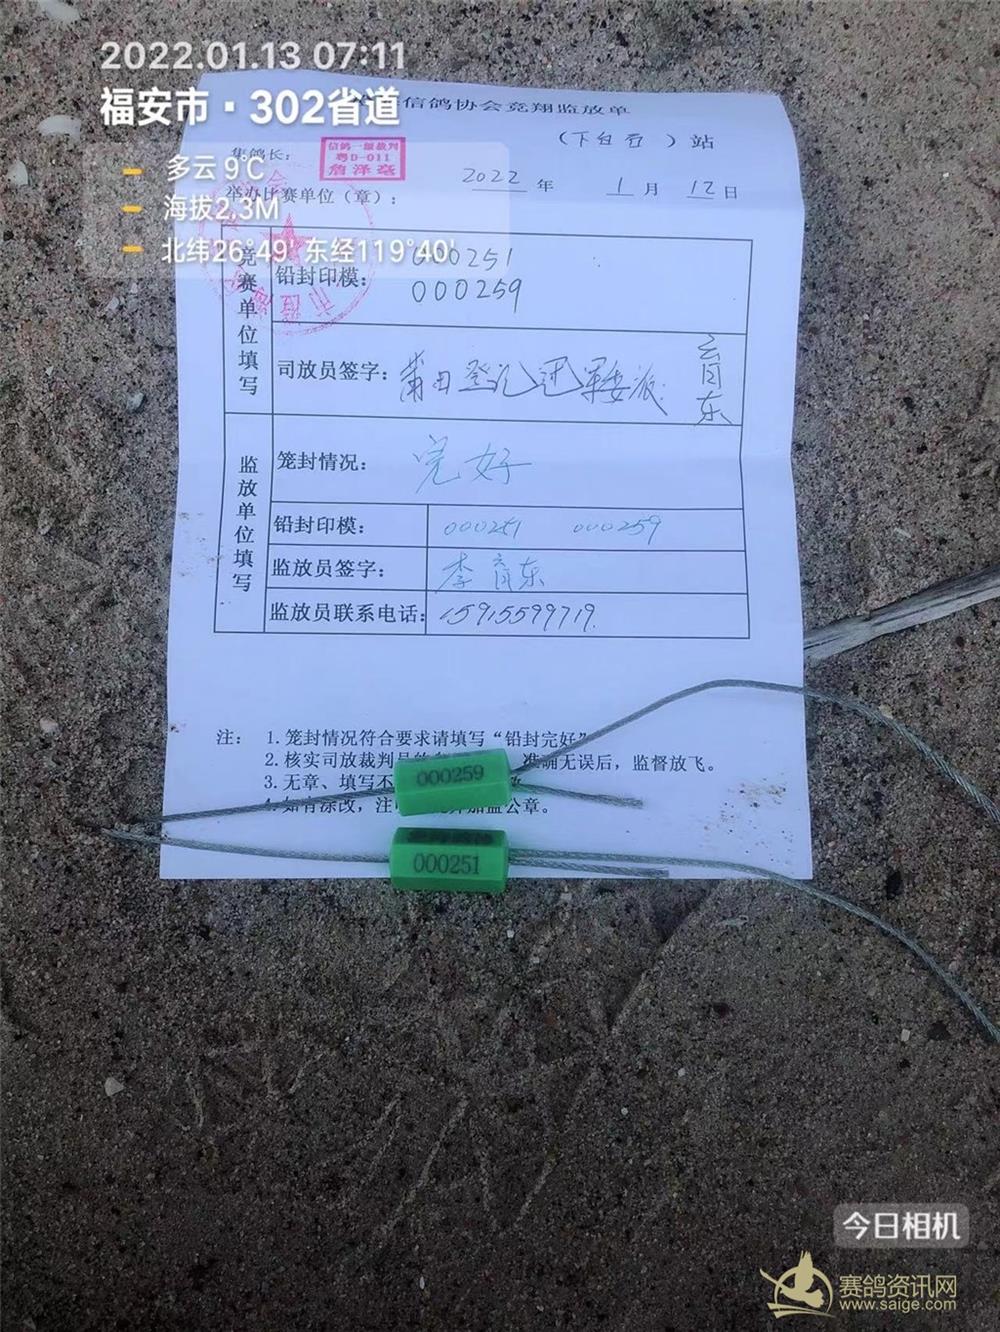 2022.01.13 07:11
福安市·302省道
多云 9℃
海拔2.3M
北纬26°49' 东经119°40'
信鸽协会竞翔监放单
（下白石）站
集鸽长：
信鸽一级裁判
粤D-011
詹泽亳
2022 年 1 月 12 日
举办比赛单位（章）：
竞赛单位填写
铅封印模：
000251
000259
司放员签字：
莆田登记
东
监放单位填写
笼封情况： 完好
铅封印模： 000251 000259
监放员签字： 李育东
监放员联系电话： 15915599719.
注： 1.笼封情况符合要求请填写“铅封完好”
2.核实司放裁判员 准确无误后，监督放飞。
3.无章、填写不
4.如有涂改，注 加盖公章。
000259
000251
今日相机
赛鸽资讯网
www.saige.com